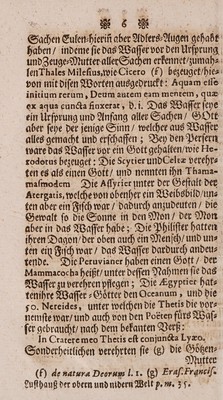 6
Sachen Eulen hierin aber Adlers-Augen gehabt
haben / indeme sie das Wasser vor den Ursprung
und Zeuge-Mutter aller Sachen erkennet / zumah-
len Thales Milesius, wie Cicero (f) bezeuget / hie-
von mit disen Worten außgedruckt: Aquam esse
initium rerum, Deum autem eam mentem, quæ
ex aqua cuncta finxerat, d. i. Das Wasser seye
ein Ursprung und Anfang aller Sachen / GOtt
aber seye der jenige Sinn / welcher auß Wasser
alles gemacht und erschaffen: Bey den Persern
ware das Wasser vor ein Gott gehalten / wie He-
rodotus bezeuget: Die Scytier und Celtæ verehr-
ten es als einen Gott / und nennten ihn Thama-
masmodem Die Assyrier unter der Gestalt der
Atergatis, welche von obenher ein Weibsbild / un-
ten aber ein Fisch war / dardurch anzudeuten / die
Gewalt so die Sonne in den Mon / der Mon
aber in das Wasser habe; Die Philister hatten
ihren Dagon / der oben auch ein Mensch / und un-
ten ein Fisch war / das Wasser dardurch anden-
tende. Die Peruvianer haben einen Gott / der
Mammacocha heißt / unter dessen Nahmen sie das
Wasser zu verehren pflegen; Die Ægyptier hat-
ten ihre Wasser-Götter den Oceanum, und die
50. Nereides, unter welchen die Thetis die vor-
nemste war / und auch von den Poëten fürs Was-
ser gebraucht / nach dem bekanten Verß:
In Cratere meo Thetis est conjuncta Lyæo.
Sonderheitlichen verehrten sie (g) die Götzen-
Mutter
(f) de natura Deorum l. 1. (g) Eras. Francis.
Lusthauß der obern und nidern Welt p. m. 35.